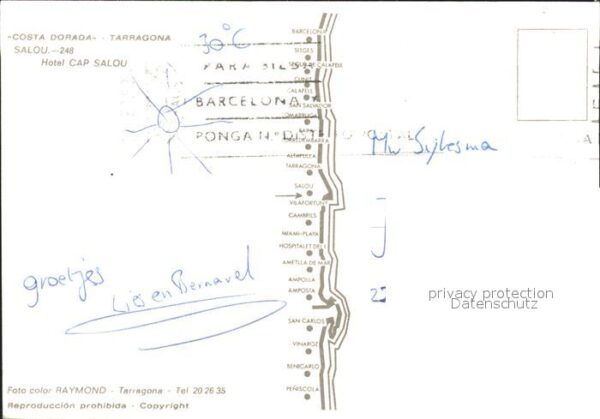 «COSTA DORADA» - TARRAGONA
SALOU.—248
Hotel CAP SALOU
30°C
PARA
BARCELONA
PONGA N.º DISTRITO
groetjes
Lies en Bernavel
Foto color RAYMOND - Tarragona - Tel 20 26 35
Reproducción prohibida - Copyright
BARCELONA
SITGES
CUNIT
CALAFELL
SAN SALVADOR
COMARRUGA
TORREDEMBARRA
ALTAFULLA
TARRAGONA
SALOU
VILAFORTUNY
CAMBRILS
MIAMI-PLATA
HOSPITALET DEL I.
AMETLLA DE MAR
AMPOLLA
AMPOSTA
SAN CARLOS
VINAROZ
BENICARLO
PEÑISCOLA
Mw Sijtesma
privacy protection
Datenschutz